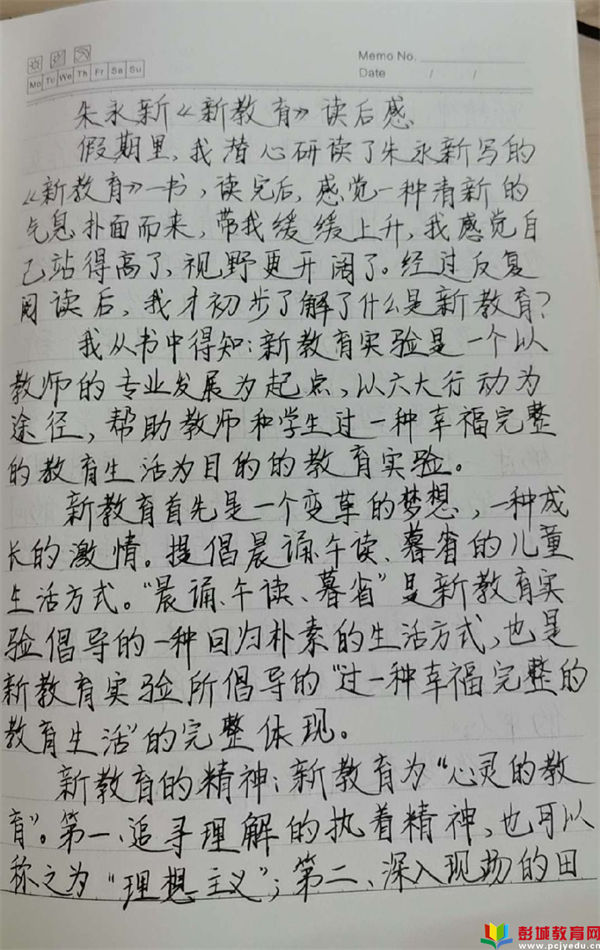 Memo No.
Mo Tu We Th Fr Sa Su
Date / /
朱永新《新教育》读后感
假期里,我潜心研读了朱永新写的
《新教育》一书,读完后,感觉一种清新的
气息扑面而来,带我缓缓上升,我感觉自
己站得高了,视野更开阔了。经过反复
阅读后,我才初步了解了什么是新教育?
我从书中得知:新教育实验是一个以
教师的专业发展为起点,以六大行动为
途径,帮助教师和学生过一种幸福完整
的教育生活为目的的教育实验。
新教育首先是一个变革的梦想,一种成
长的激情。提倡晨诵、午读、暮省的儿童
生活方式。“晨诵、午读、暮省”是新教育实
验倡导的一种回归朴素的生活方式,也是
新教育实验所倡导的“过一种幸福完整的
教育生活”的完整体现。
新教育的精神:新教育为“心灵的教
育”。第一、追寻理解的执着精神,也可以
称之为“理想主义”;第二、深入现场的田
彭城教育网
www.pcjyedu.cn